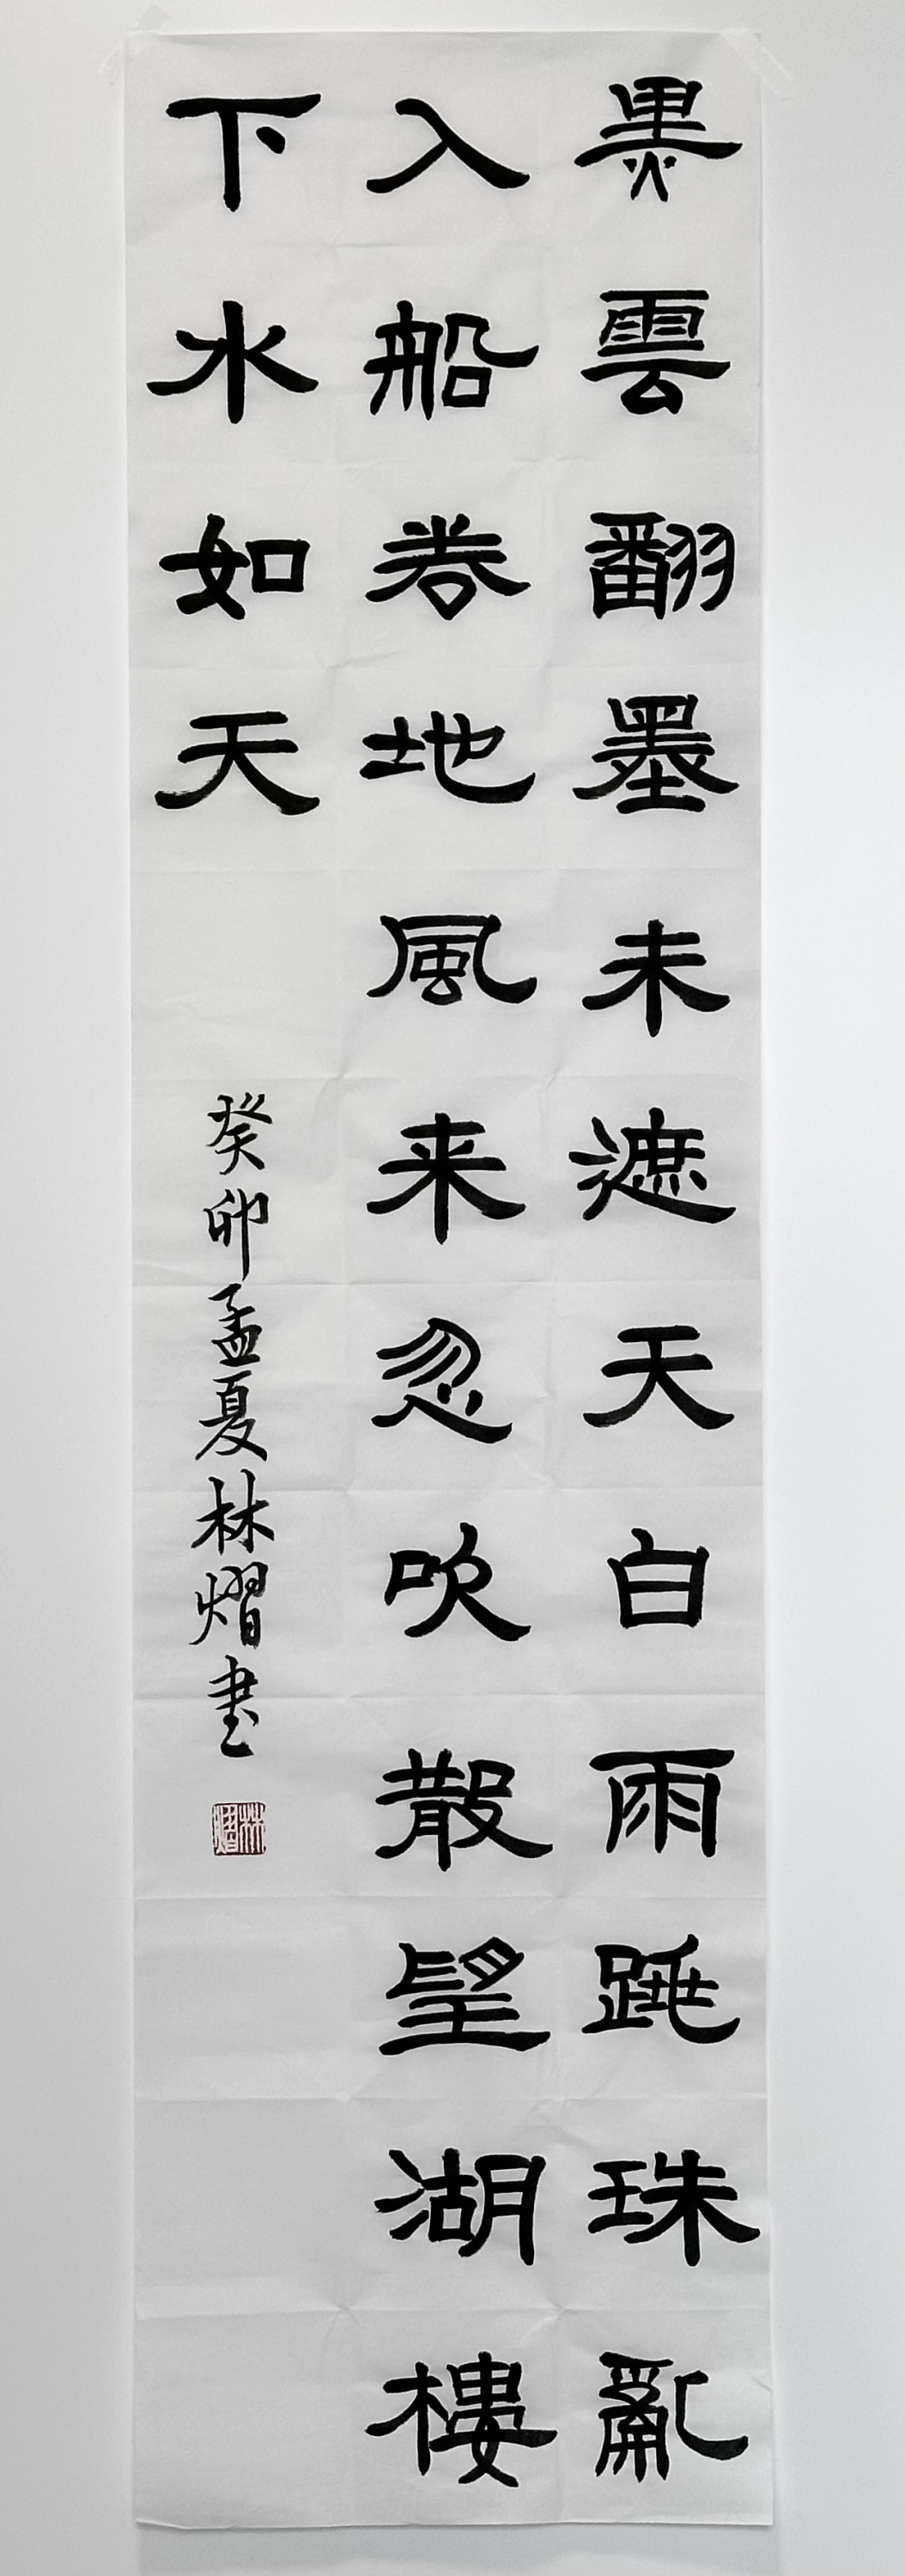 黑雲翻墨未遮天白雨跳珠亂
入船卷地風来忽吹散望湖樓
下水如天
癸卯孟夏林熠書
林熠